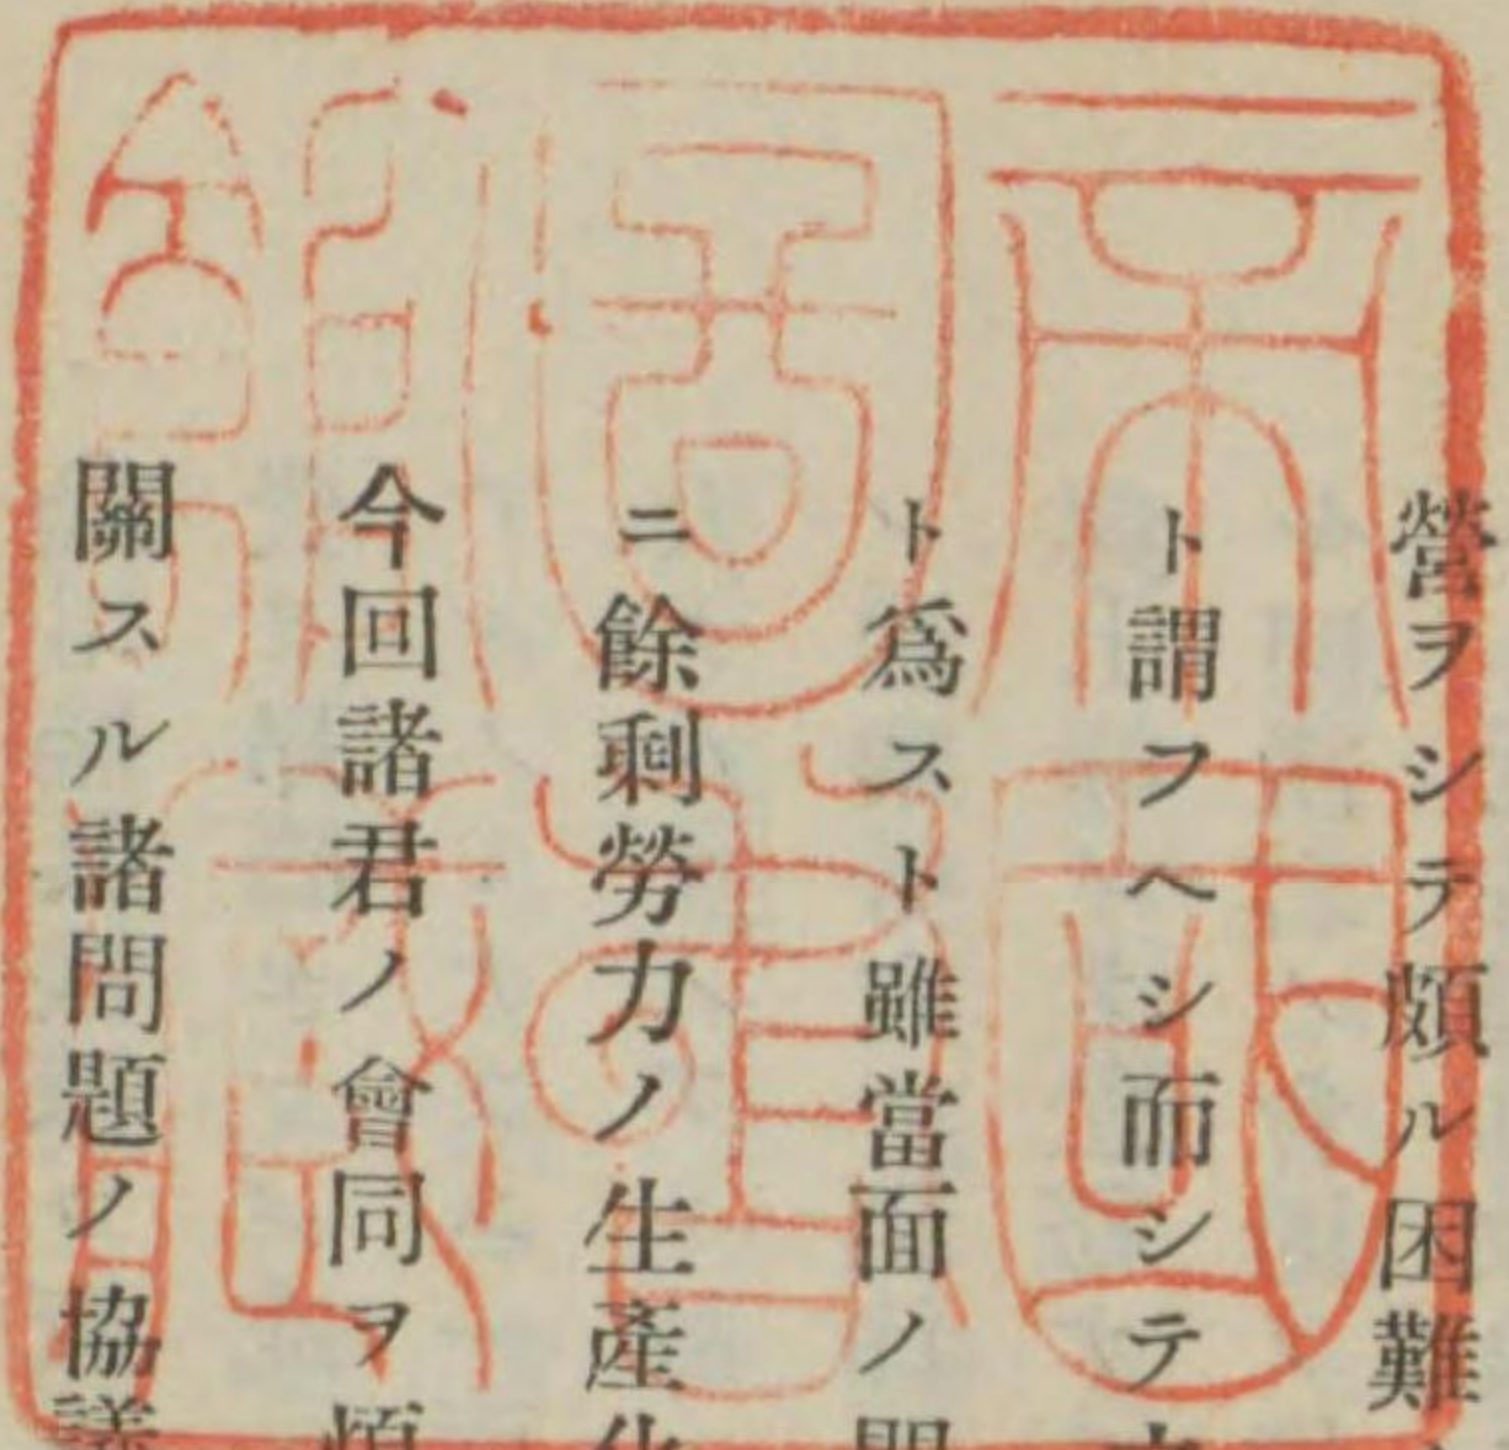 營ヲシテ頗ル困難
ト謂フヘシ而シテ
ト爲スト雖當面ノ
ニ餘剩勞力ノ生產化
今回諸君ノ會同ヲ煩
關スル諸問題ノ協議
帝國圖書館藏